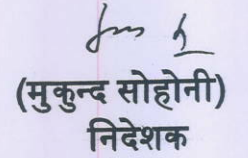 (मुकुन्द सोहोनी)
निदेशक